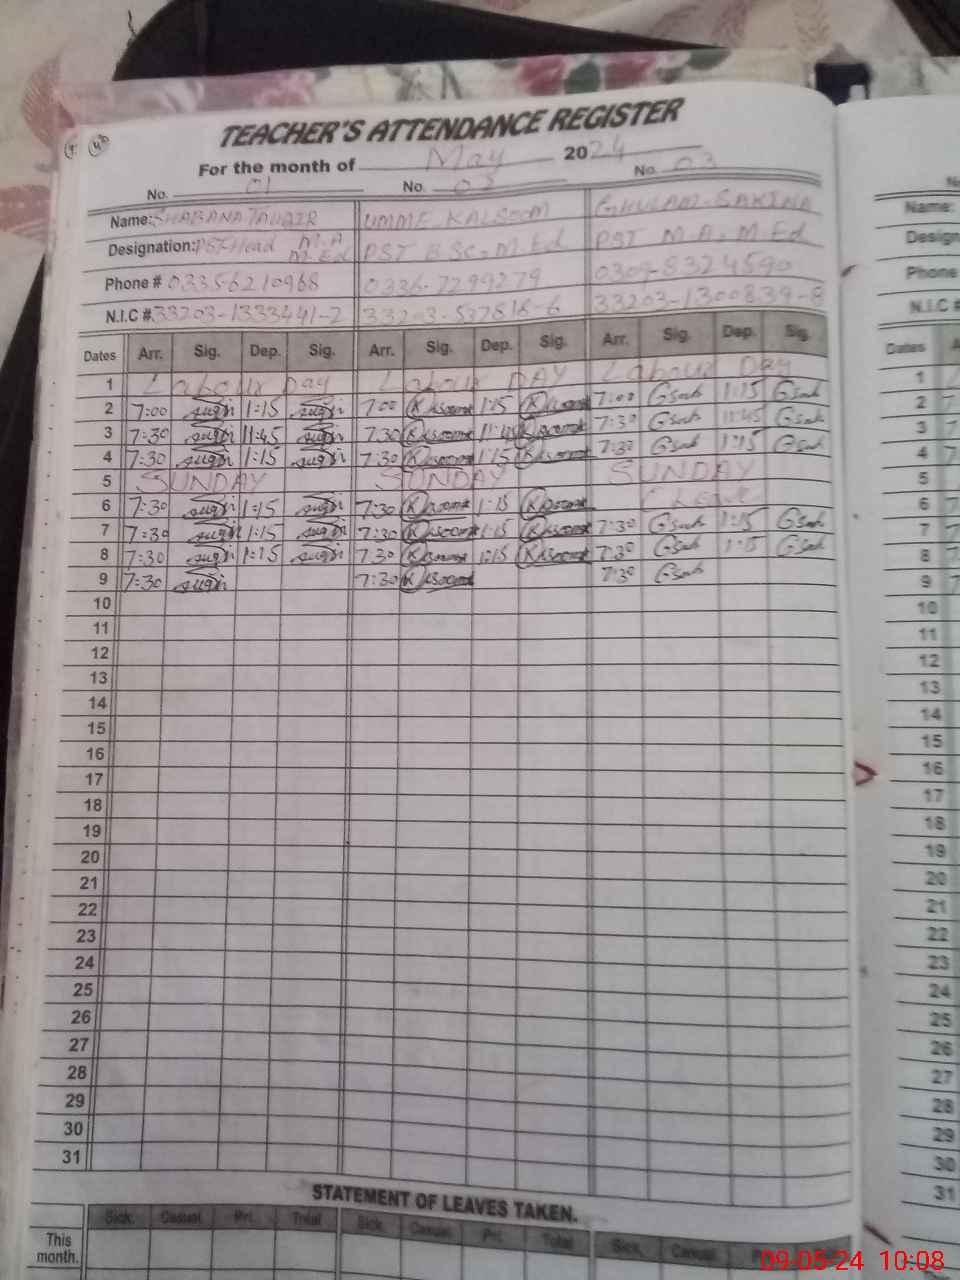 TEACHER'S ATTENDANCE REGISTER
For the month of May 2024
No. 01 No. 02 No. 03
Name: SHABANA TAUQIR UMME KALSOOM GHULAM SAKINA
Designation: PST Head M.A M.Ed PST B.Sc. M.Ed PST M.A, M.Ed
Phone # 03356210968 0336-7299279 0309-8324590
N.I.C # 33203-1333441-2 33203-537818-6 33203-1300839-8
Dates Arr. Sig. Dep. Sig. Arr. Sig. Dep. Sig. Arr. Sig. Dep. Sig.
1 Labour Day Labour DAY Labour Day
2 7:00 1:15 7:00 1:15 7:00 Gsak 1:15 Gsak
3 7:30 11:45 7:30 11:45 7:30 Gsak 11:45 Gsak
4 7:30 1:15 7:30 1:15 7:30 Gsak 1:15 Gsak
5 SUNDAY SUNDAY SUNDAY
6 7:30 1:15 7:30 1:15 Leave
7 7:30 1:15 7:30 1:15 7:30 Gsak 1:15 Gsak
8 7:30 1:15 7:30 1:15 7:30 Gsak 1:15 Gsak
9 7:30 7:30 7:30 Gsak
10
11
12
13
14
15
16
17
18
19
20
21
22
23
24
25
26
27
28
29
30
31
STATEMENT OF LEAVES TAKEN.
Sick. Casual. Pri. Total Sick. Casual. Pri. Total Sick. Casual.
This month.
Name:
Design
Phone #
N.I.C #
Dates
1
2
3
4
5
6
7
8
9
10
11
12
13
14
15
16
17
18
19
20
21
22
23
24
25
26
27
28
29
30
31
09-05-24 10:08